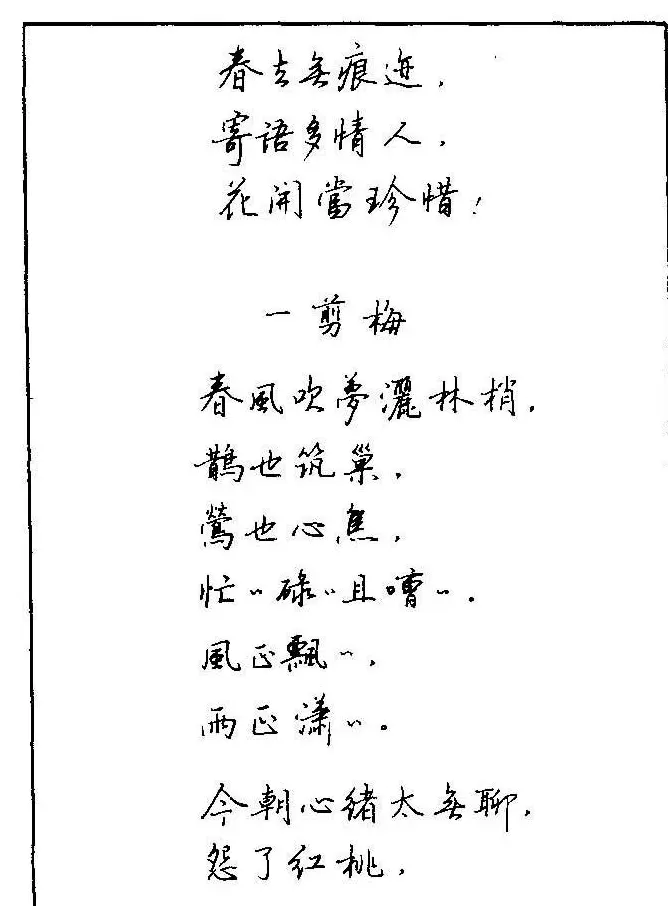 春去無痕迹，
寄語多情人，
花開當珍惜！
一剪梅
春風吹夢灑林梢，
鵲也筑巢，
鶯也心焦，
忙〃碌〃且嘈〃。
風正飄〃，
雨正潇〃。
今朝心緒太無聊，
怨了红桃，